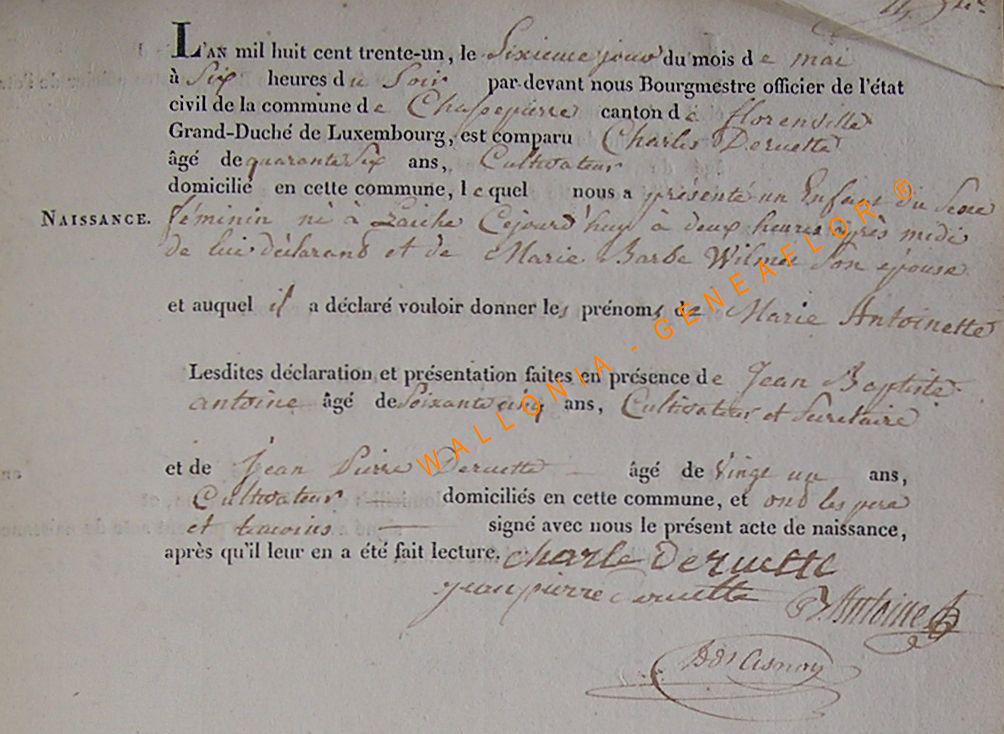 L'AN mil huit cent trente-un, le Sixieme jour du mois de mai
à Six heures du Soir par-devant nous Bourgmestre officier de l'état
civil de la commune de Chassepierre canton de florenville
Grand-Duché de Luxembourg, est comparu Charles Deruette
âgé de quarante Six ans, Cultivateur
domicilié en cette commune, lequel nous a présenté un Enfant du Sexe
NAISSANCE.
féminin né à Laiche Cejourd'huy à deux heures après midi
de lui déclarand et de Marie Barbe Wilmee Son épouse
et auquel il a déclaré vouloir donner les prénoms de Marie Antoinette
Lesdites déclaration et présentation faites en présence de Jean Baptiste
antoine âgé de Soixante cinq ans, Cultivateur et Secretaire
et de Jean Pierre Deruette âgé de Vingt un ans,
Cultivateur domiciliés en cette commune, et ond les pere
et temoins signé avec nous le présent acte de naissance,
après qu'il leur en a été fait lecture. charle Deruette
jean pierre Deruette Antoine
WALLONIA - GENEAFLOR ®